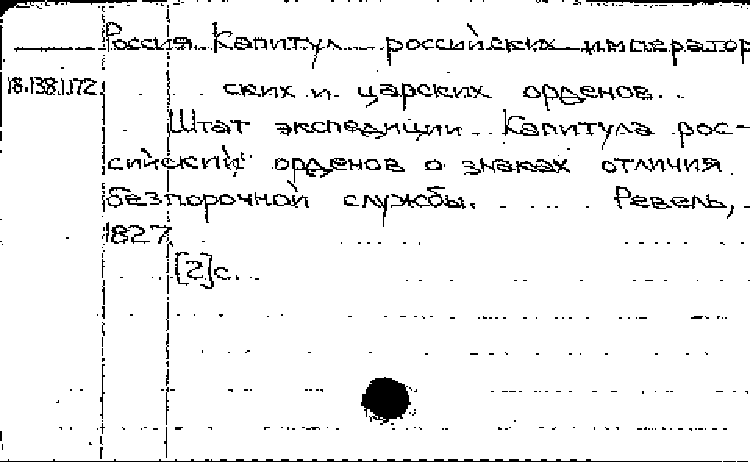 Россия. Капитул российских император
18.138.1.172. ских и царских орденов.
Штат экспедиции Капитула рос-
сийский орденов о знаках отличия
безпорочной службы. Ревель,
1827.
[2]с.